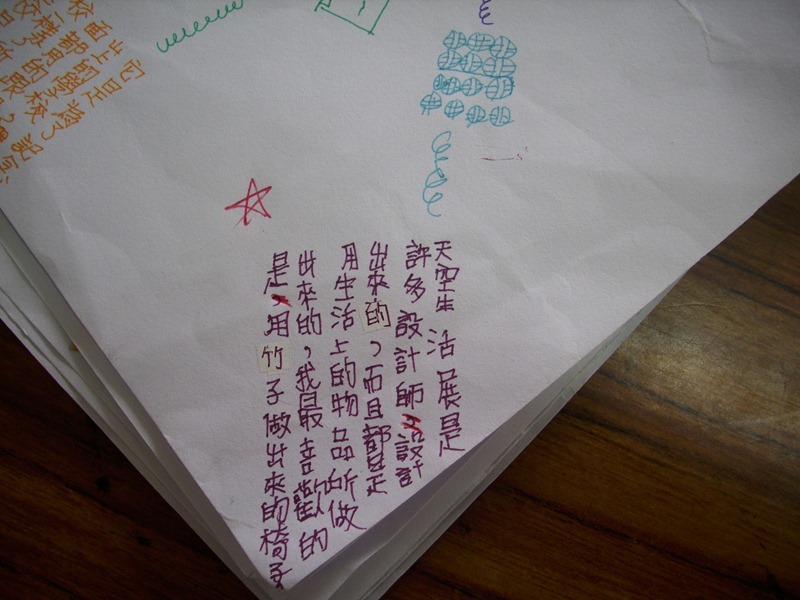 天空生活展是
許多設計師設計
出來的，而且都是
用生活上的物品所做
出來的，我最喜歡的
是用竹子做出來的椅子